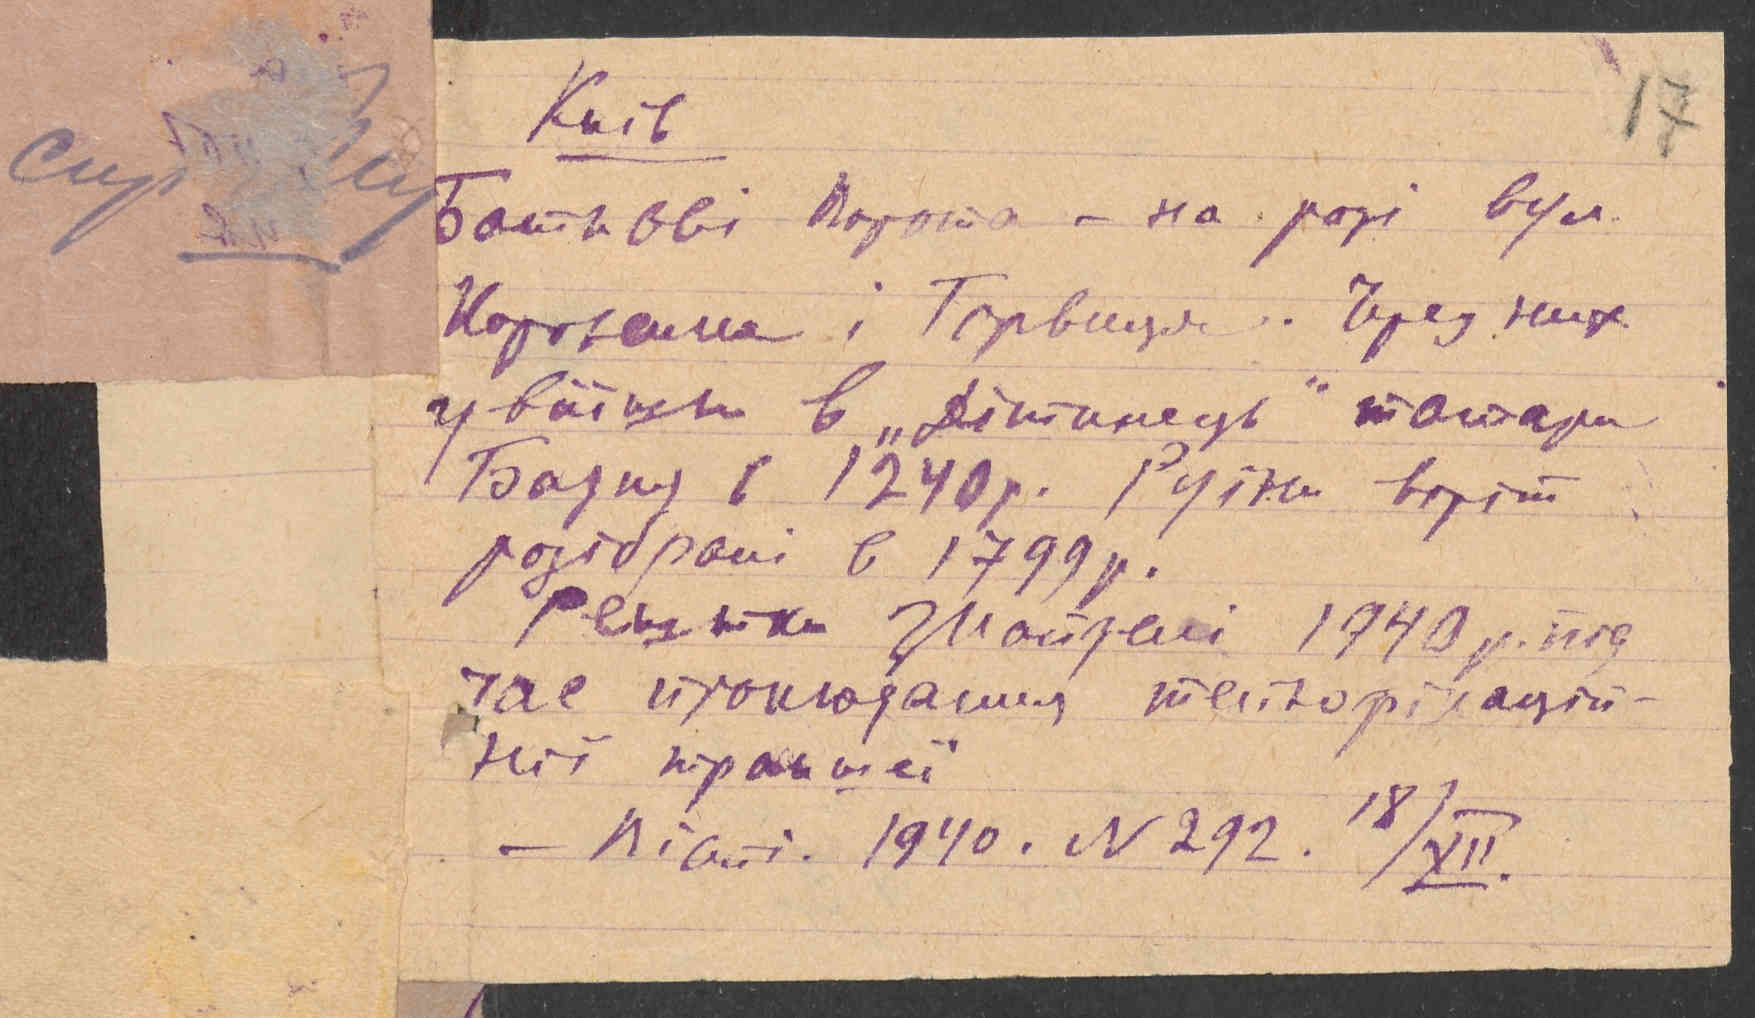 17
Київ
Батиєві ворота – на розі вул.
Короленка і Гершуні. Через них
увійшли в „Дітинець" татари
Батия в 1240 р. Руїни воріт
розібрані в 1799 р.
Рештки знайдені 1940 р. під
час прокладання теплофікацій-
ної траншеї
– Вісті. 1940. N 292. 18/XII.